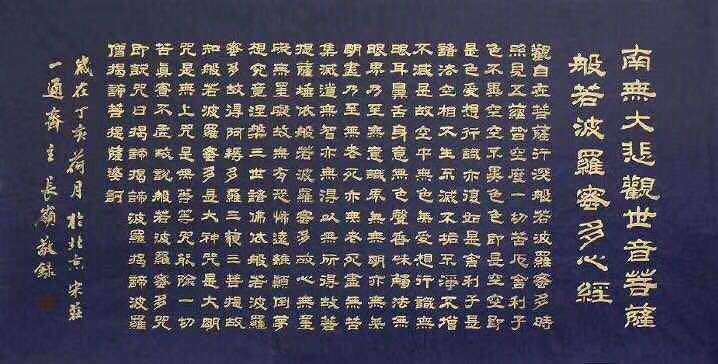 南無大悲觀世音菩薩
般若波羅蜜多心經
觀自在菩薩行深般若波羅蜜多時
照見五蘊皆空度一切苦厄舍利子
色不異空空不異色色即是空空即
是色受想行識亦復如是舍利子是
諸法空相不生不滅不垢不淨不增
不減是故空中無色無受想行識無
眼耳鼻舌身意無色聲香味觸法無
眼界乃至無意識界無無明亦無無
明盡乃至無老死亦無老死盡無苦
集滅道無智亦無得以無所得故菩
提薩埵依般若波羅蜜多故心無罣
礙無罣礙故無有恐怖遠離顛倒夢
想究竟涅槃三世諸佛依般若波羅
蜜多故得阿耨多羅三藐三菩提故
知般若波羅蜜多是大神咒是大明
咒是無上咒是無等等咒能除一切
苦真實不虛故說般若波羅蜜多咒
即說咒曰揭諦揭諦波羅揭諦波羅
僧揭諦菩提薩婆訶
歲在丁亥荷月於北京宋莊
一通齋主長敬錄